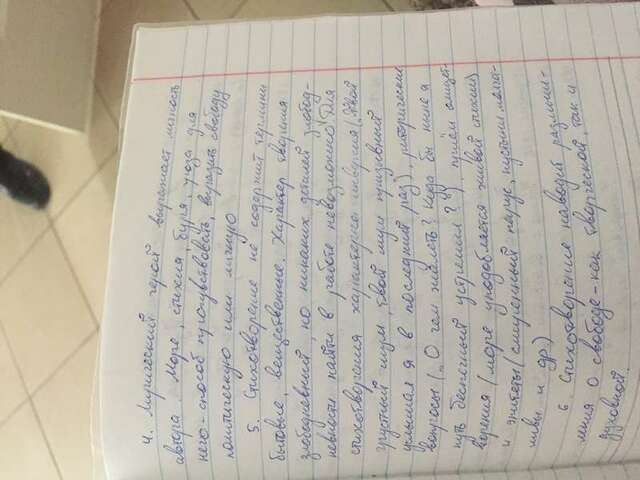 4. Лирический герой выражает личность
автора. Море, стихия, буря, гроза для
него - способ прочувствовать, выразить свободу
политическую или личную
5. Стихотворение не содержит термины
бытовые, вещественные. Характер творения
злободневный, но никаких деталей злобод-
невности найти в работе невозможно. Для
стихотворения характерна инверсия („Твой
грустный шум, твой шум призывный
услышал я в последний раз"), риторические
вопросы („О чём жалеть? Куда бы ныне я
путь беспечный устремил?"), приём олицет-
ворения (море уподобляется живой стихии)
и эпитеты (смиренный парус, пустыни молча-
ливы и др.)
6. Стихотворение наводит размышле-
ния о свободе - как творческой, так и
духовной.